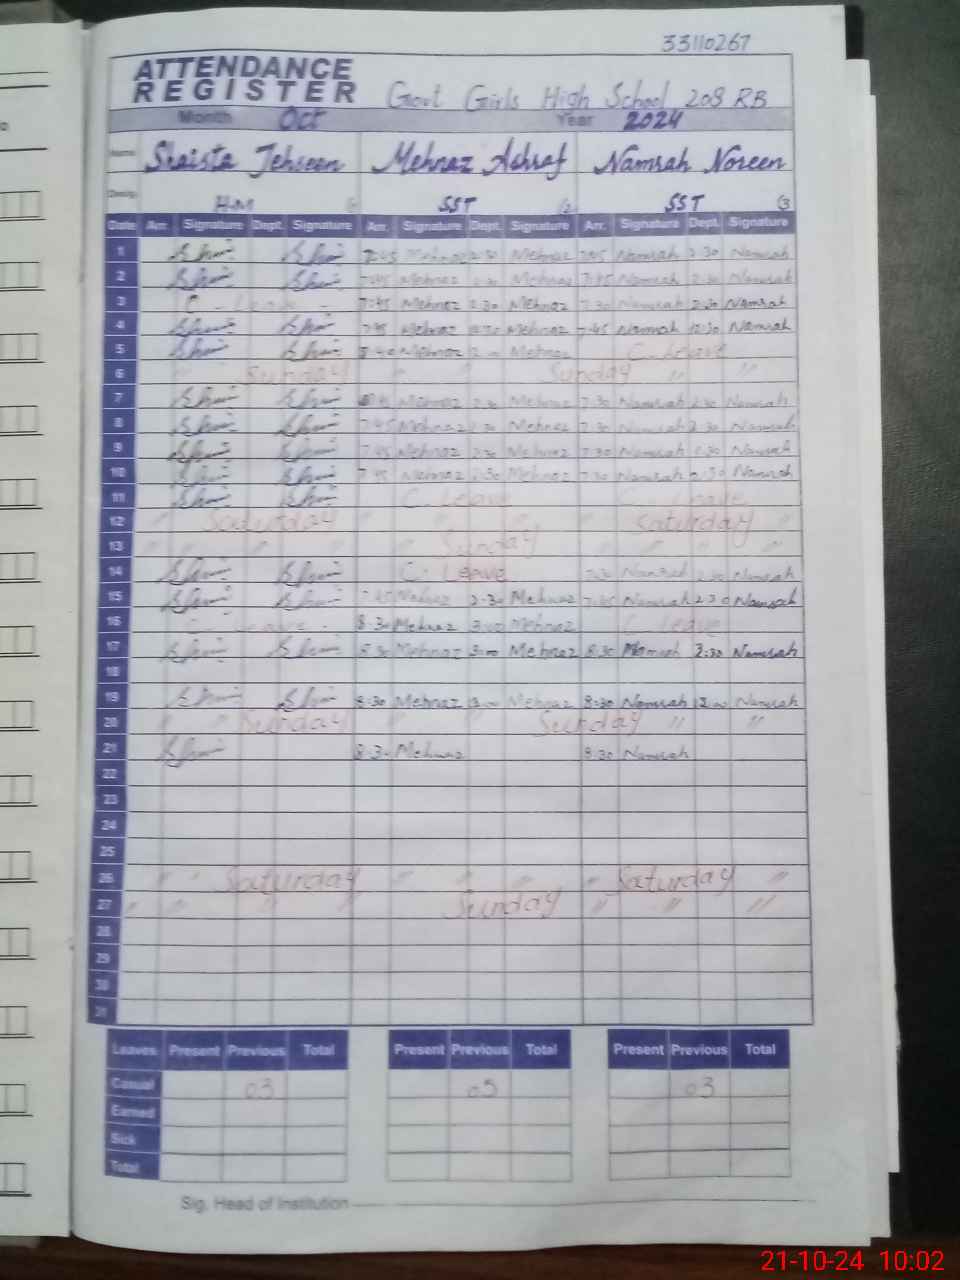 33110267
ATTENDANCE
REGISTER
Govt Girls High School 208 RB
Month Oct Year 2024
Name Shaista Tehseen Mehnaz Ashraf Namrah Noreen
Desig: H.M SST 2 SST 3
Date Arr. Signature Dept. Signature Arr. Signature Dept. Signature Arr. Signature Dept. Signature
1 7:45 Mehnaz 2:30 Mehnaz 7:45 Namrah 2:30 Namrah
2 7:45 Mehnaz 2:30 Mehnaz 7:45 Namrah 2:30 Namrah
3 C. Leave 7:45 Mehnaz 2:30 Mehnaz 7:30 Namrah 2:30 Namrah
4 7:45 Mehnaz 12:30 Mehnaz 7:45 Namrah 12:30 Namrah
5 Mehnaz Mehnaz C. Leave
6 " Sunday " " Sunday " "
7 Mehnaz 2:30 Mehnaz 7:30 Namrah 2:30 Namrah
8 7:45 Mehnaz 2:30 Mehnaz 7:30 Namrah 2:30 Namrah
9 7:45 Mehnaz 2:30 Mehnaz 7:30 Namrah 2:30 Namrah
10 7:45 Mehnaz 2:30 Mehnaz 7:30 Namrah 2:30 Namrah
11 C. Leave C. Leave
12 " Saturday " " " " Saturday "
13 " " " " Sunday " " "
14 C. Leave 7:30 Namrah 2:30 Namrah
15 7:45 Mehnaz 2:30 Mehnaz 7:45 Namrah 2:30 Namrah
16 C. Leave 8:30 Mehnaz 3:00 Mehnaz C. Leave
17 8:30 Mehnaz 3:00 Mehnaz 8:30 Namrah 2:30 Namrah
18
19 8:30 Mehnaz Mehnaz 8:30 Namrah 12:00 Namrah
20 " " Sunday " " Sunday " "
21 8:30 Mehnaz 8:30 Namrah
22
23
24
25
26 Saturday " " " " Saturday "
27 " " " " Sunday " " "
28
29
30
31
Leaves Present Previous Total Present Previous Total Present Previous Total
Casual 03 05 03
Earned
Sick
Total
Sig. Head of Institution
21-10-24 10:02